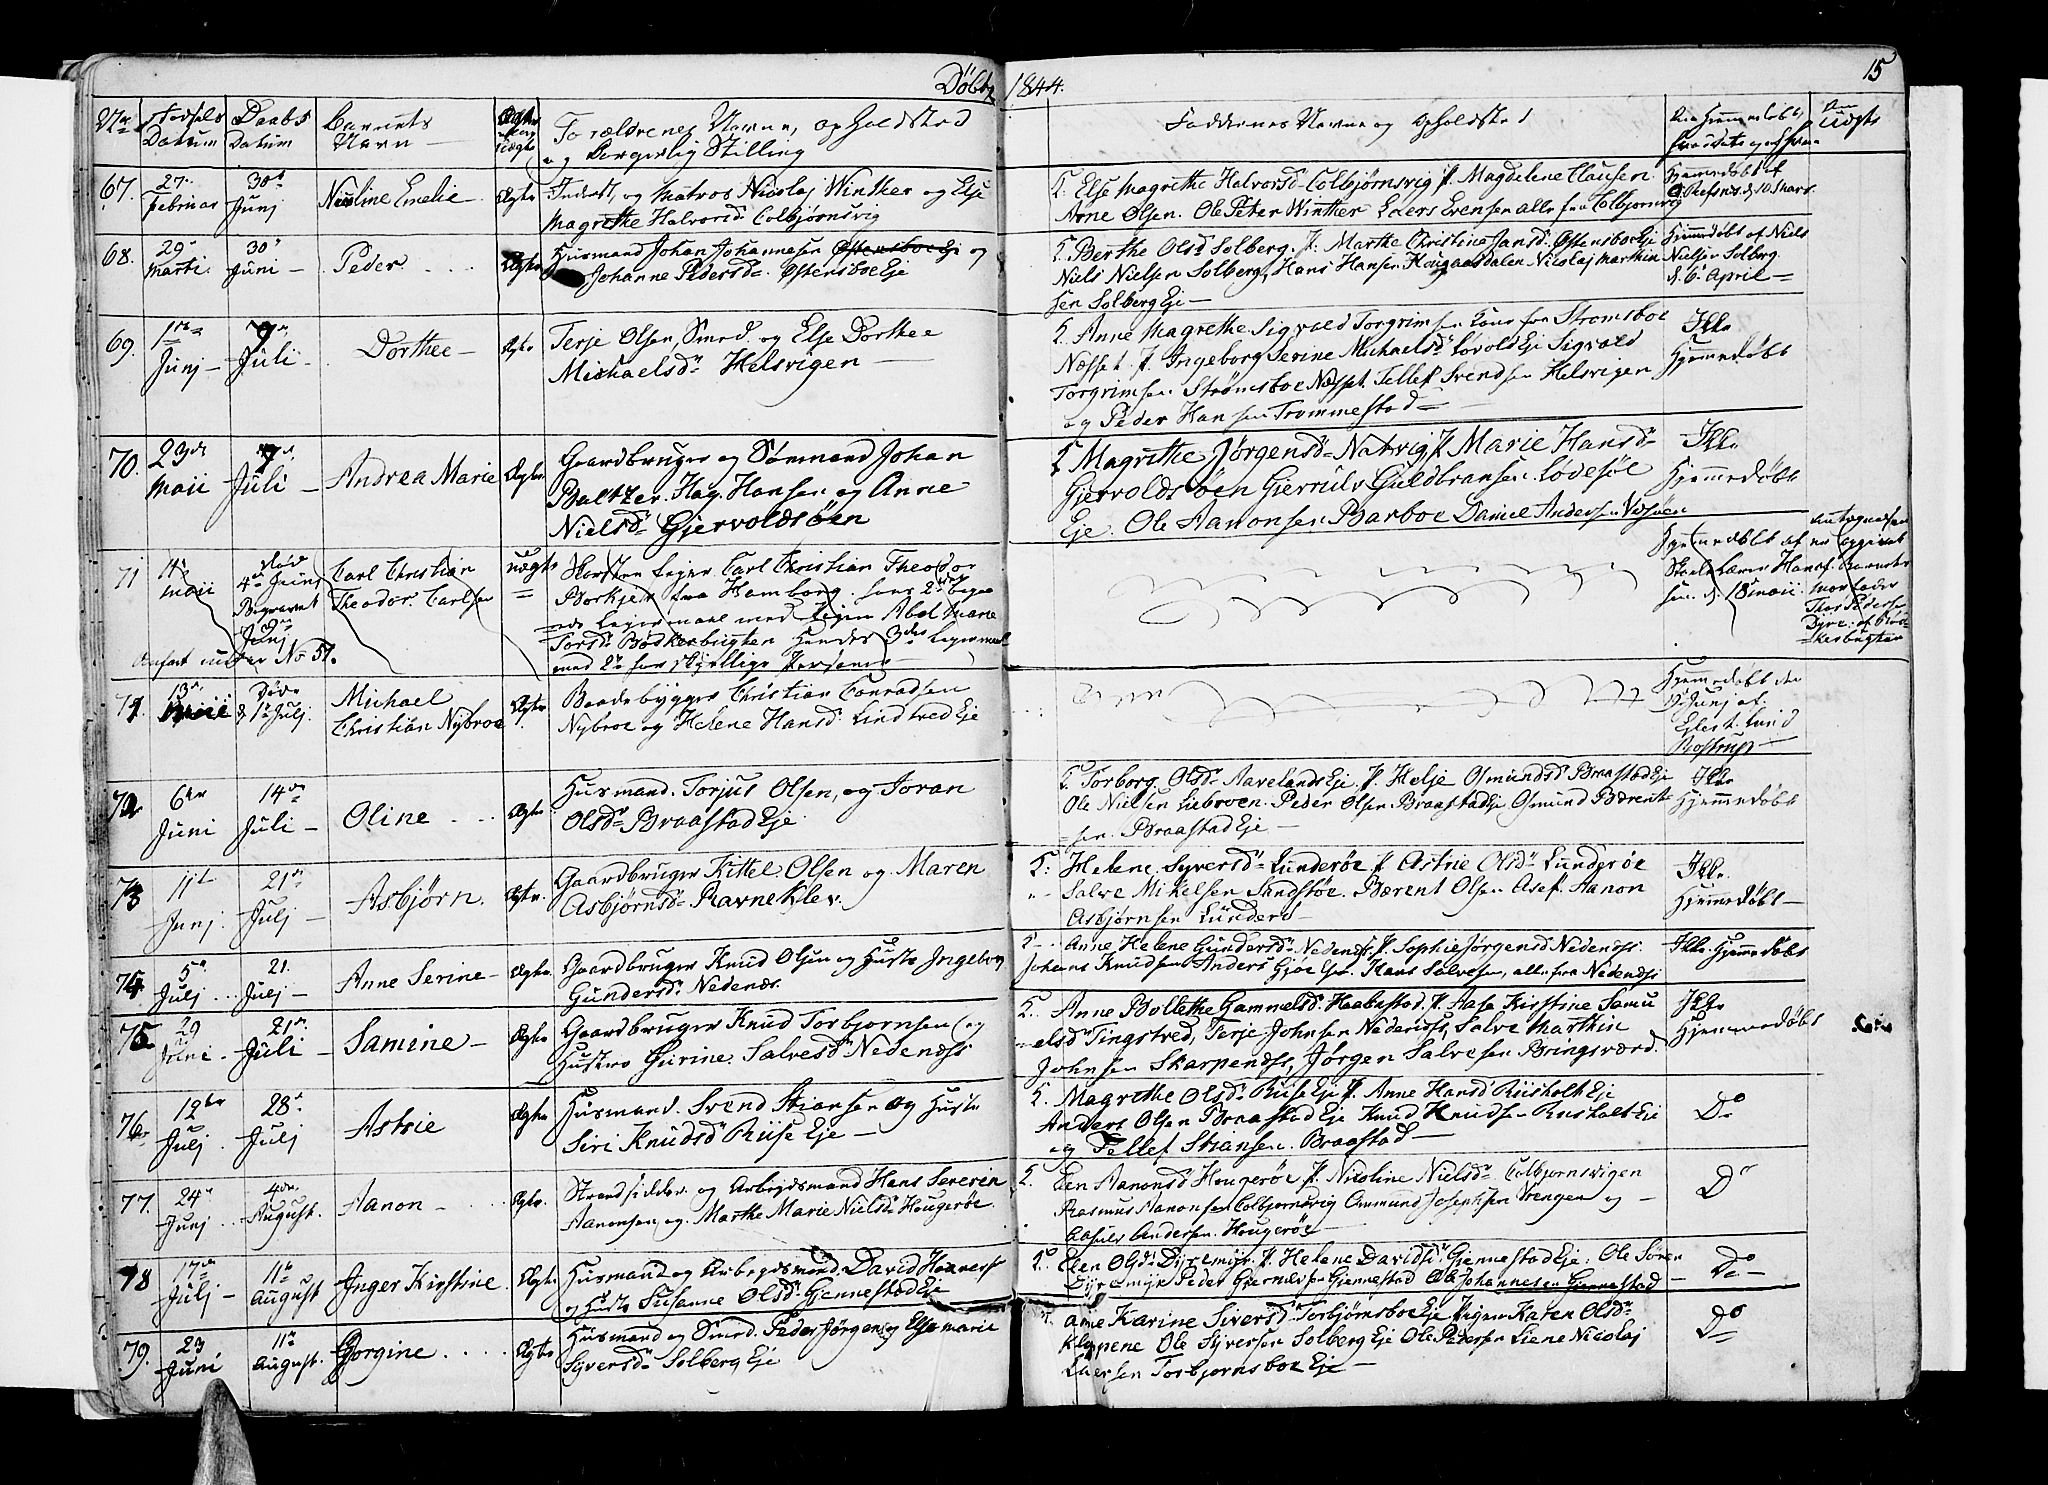 Døbte 1844.
15
Nr
Fødsels Datum
Daabs Datum
Barnets Navn
Forældrenes Navne, Opholdsted
og Borgerlig Stilling
Faddernes Navne og Opholdsted
67.
27. Februar
30te Junj
Nicoline Emelie
Ægte
Inderst, og Matros Nicolaj Winther og Else
Magrethe Halvorsd. Colbjørnsvig
Else Magrethe Halvorsd. Colbjørnsvig P. Magdelene Clausen
Arne Olsen. Ole Peter Winther Evensen alle fra Colbjørnsvig
Hjemmedøbt af
d. 10 Marts
68.
29 Marti
30 Juni
Peder
Ægte
Husmand Johan Johannesen og
Johanne Pedersd. Østensboe Eje
Berthe Olsd Solberg. P. Marthe Christine Jansd. Østensboe Eje
Niels Nielsen Solberg, Hans Hansen Hougaasdalen Nicolaj Marthin
sen Solberg Eje
Hjemmedøbt af Niels
Nielsen Solberg
d. 6 April
69.
1ste Junj
7de Juli
Dorthee
Ægte
Terje Olsen Smed. og Else Dorthee
Michaelsd. Helsvigen
Anne Magrethe Sigvald Torgrimsen Kone fra Strømsboe
Næsset. P. Ingeborg Serine Michaelsd. Løvold Eje Sigvald
Torgrimsen Strømsboe Næsset Tellef Svendsen Helsvigen
og Peder Hansen Trommestad
Ikke
Hjemmedøbt
70.
23de Maii
7de Juli
Andrea Marie
Ægte
Gaardbruger og Sømand Johan
Baltzer Hag. Hansen og Anne
Nielsd. Gjervoldsøen
Magrethe Jørgensd. Natvig P. Marie Hansd.
Gjervoldsøen Gjerulv Guldbransen Lødesøl
Eje. Ole Aanonsen Barboe Daniel Andersen
Ikke
Hjemmedøbt
71
Maii
død
4de Junj
Begravet
Junj
Carl Christian
Theodor. Carlsen
uægte
Carl Christian Theodor
fra Hamborg. hans 2det
Leiermaal med Pigen Abel Marie
Torsd. Bødkerbugten Hendes 3die Leiermaal
med 2de forskjellige Personer
Anført under No 51.
Hjemmedøbt af
Skolelærer Hansen
d. 18 Maii
Barnets
Morfader
Thor Pedersen
Dyre af Bødkerbugten
71.
13 Maii
Døde
d 1te Julj.
Michael
Christian Nybroe
Ægte
Baadebygger Christian Conradsen
Nybroe og Helene Hansd. Lindtved Eje
Hjemmedøbt den
Junj af
Lund
Bostrup
72
6te Juni
14de Juli
Oline
Ægte
Husmand. Torjus Olsen, og Joran
Olsd. Braastad Eje
Torborg. Olsd. Aavelands Eje. P. Helje Osmundsd. Braastad Eje
Ole Nielsen Liebroen. Peder Olsen Braastad Eje Osmund Bærent
sen. Braastad Eje
Ikke
Hjemmedøbt
73
11te Junj.
21de Julj
Asbjørn.
Ægte.
Gaardbruger Kittel Olsen og Maren
Asbjørnsd. Ravneklev.
Helene. Syversd. Lunderøe P. Astrie Olsd. Lunderøe
Salve Mikelsen Sandstøe. Bærent Olsen Ase P. Aanon
Asbjørnsen Lunderø
Ikke
Hjemmedøbt
74
5te Julj
21. Julj
Anne Serine
Ægte.
Gaardbruger Knud Olsen og Hustr Ingeborg
Gundersd. Nedenæs.
Anne Helene Gundersd. Nedenæs, P. Sophie Jørgensd Nedenæs.
Johans Knudsen Anders Gjøe Hans Salvesen, alle fra Nedenæs
Ikke Hjemmedøbt
75
29 Juni
21de Juli
Samine
Ægte
Gaardbruger Knud Torbjornsen og
Hustro Gurine Salvesd. Nedenæs
Anne Bollethe Gammelsd. Haabestad, P. Aase Kirstine Samu
elsd Tingstved, Terje Johnsen Nedenæs, Salve Marthin
Johnsen Skarpenæs, Jørgen Salvesen Bringsværd.
Ikke
Hjemmedøbt
76
12te Julj
28de Julj
Astrie
Ægte
Husmand. Svend Stiansen og Hustr
Siri Knudsd. Riise Eje
Magrethe Olsd. Riise Eje P. Anne Hansd. Riisholt Eje
Anders Olsen Braastad Eje Knud Knudsen Riisholt Eje
og Tellef Stiansen. Braastad
Do
77.
24de Junj
4de August.
Aanon
Ægte.
Strandsidder og Arbejdsmand Hans Severin
Aanonsen, og Marthe Marie Nielsd. Hougerøe.
Elen Aanonsd Hougerøe P. Nicoline Nielsd. Colbjørnsvigen
Rasmus Aanonsen Colbjørnsvig Ommund Josephsen Vrengen og
Andersen. Hougerøe
Do
78
17de Julj
11te August
Inger Kirstine
Ægte
Husmand og Arbejdsmand. David
og Hustr Susanne Olsd. Gjennestad Eje
Elen Olsd. Dyremyr. P. Helene Davidsd. Gjennestad Eje. Ole Søren
Dyremyr Peder Gjennestad Ole Johannesen Gjennestad
Do
79.
23 Juni
11te August.
Gorgine
Ægte
Husmand og Smed. Peder Jørgen og Else Marie
Syversd. Solberg Eje
Karine Siversd. Torbjørnsboe Eje Pigen Karen Olsd.
Kleppene Ole Syversen Solberg Eje Ole Pedersen Liene Nicolaj
Torbjornsboe Eje
Do